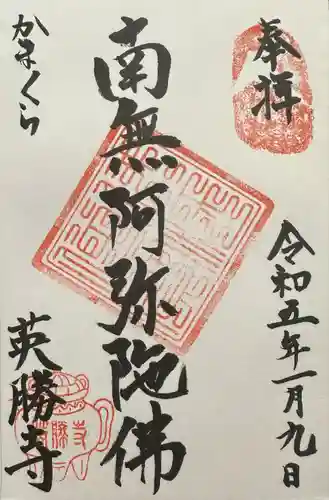 奉拝
令和五年一月九日
南無阿弥陀佛
かまくら
英勝寺